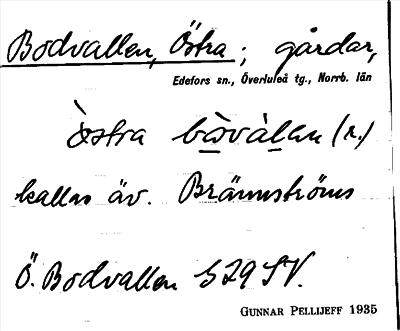 Bodvallen, Östra; gårdar,
Edefors sn., Överluleå tg., Norrb. län
östra bòvàlan (n.)
kallas äv. Brännströms
Ö. Bodvallen 529 SV.
GUNNAR PELLIJEFF 1935